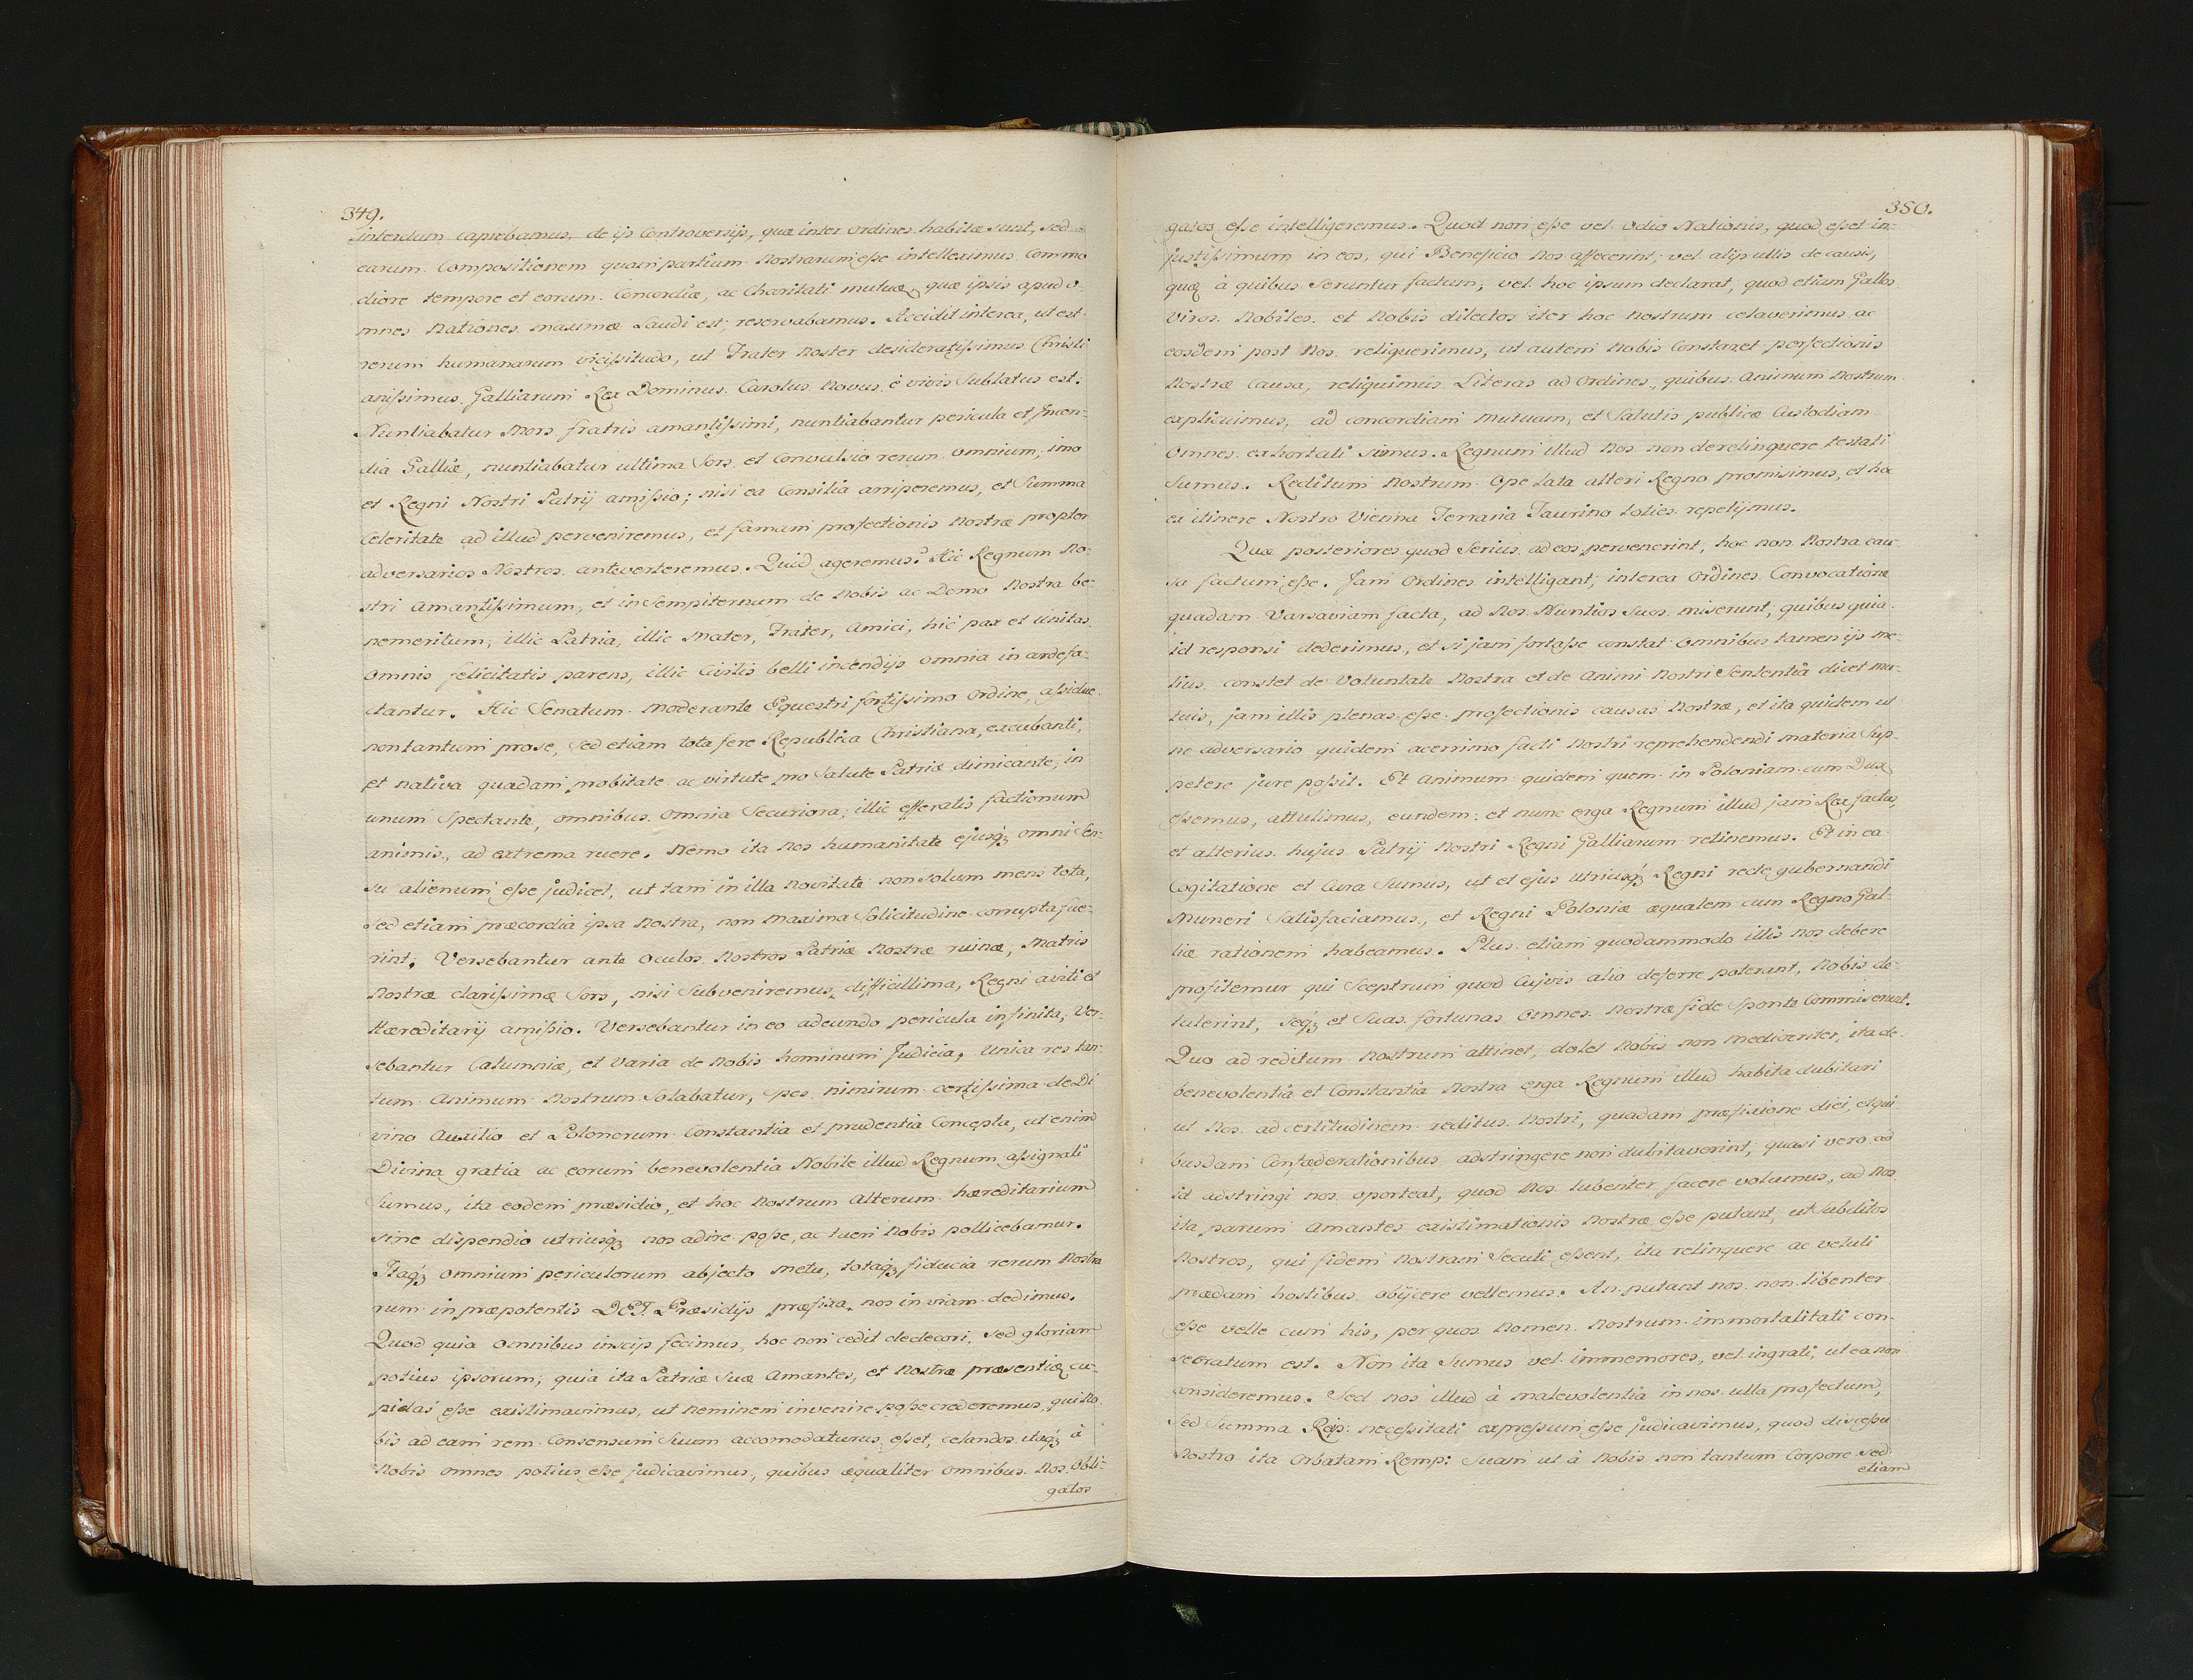 349.
interdum capiebamus, de ijs Controversijs, quæ inter Ordines habitæ sunt, sed
earum Compositionem quam partium Nostrarum esse intelleximus Commo
diore tempore et eorum Concordiæ, ac Charitati mutuæ, quæ ipsis apud o-
mnes Nationes maximæ Laudi est, reservabamus. Accidit interea, ut est
rerum humanarum vicissitudo, ut Frater Noster desideratissimus Christi
anissimus Galliarum Rex Dominus Carolus Novus è vivis Sublatus est.
Nuntiabatur Mors fratris amantissimi, nuntiabantur pericula et Jncen-
dia Galliæ, nuntiabatur ultima Sors et Convulsio rerum omnium, imo
et Regni Nostri Patrij amissio; nisi ea Consilia arriperemus, et Summa
Celeritate ad illud perveniremus, et famam profectionis Nostræ propter
adversarios Nostros anteverteremus. Quid ageremus? Hic Regnum No-
stri amantissimum, et in Sempiternum de Nobis ac Domo Nostra be-
nemeritum, illic Patria, illic Mater, Frater, Amici, hic pax et Unitas
Omnis felicitatis parens, illic Civilis belli incendijs omnia in ardefa-
ctantur. Hic Senatum moderante Equestri fortissimo Ordine, assidue
non tantum pro se, Sed etiam tota fere Republica Christiana, excubanti,
et nativa quadam probitate ac virtute pro Salute Patriæ dimicante, in
unum Spectante, omnibus omnia Securiora, illic efferatis factionum
animis, ad extrema ruere. Nemo ita nos humanitate ejusq́ꝫ omni Sen-
su alienum esse judicet, ut tam in illa Novitate non solum mens tota,
Sed etiam præcordia ipsa Nostra, non Maxima Solicitudine corrupta fue-
rint. Versebantur ante Oculos Nostros Patriæ Nostræ ruinæ, Matris
Nostræ clarissimæ Sors, nisi Subveniremus, difficillima, Regni aviti et
Hæreditarij amissio. Versebantur in eo adeundo pericula infinita, Ver-
sebantur Calumniæ, et Varia de Nobis hominum Judicia, Unica res tan-
tum Animum Nostrum Solabatur, Spes nimirum certissima de Di
vino Auxilio et Polonorum Constantia et prudentia Concepta, ut enim
Divina gratia ac eorum benevolentia Nobile illud Regnum assignati
Sumus, ita eodem præsidio, et hoc Nostrum Alterum hæreditarium
sine dispendio utriusq́ꝫ nos adire posse, ac tueri Nobis pollicebamur.
Jtaq́ꝫ omnium periculorum abjecto Metu, totaq́ꝫ fiducia rerum Nostra
rum in præpotentis DEJ Præsidijs præfixa, nos in viam dedimus.
Quod quia omnibus inscijs fecimus, hoc non cedit dedecori, Sed gloriam
potius ipsorum, quia ita Patriæ Suæ Amantes, et Nostræ præsentiæ cu-
pidas esse existimavimus, ut neminem invenire posse crederemus, qui No
bis ad eam rem Consensum Suum accomodaturus esset, celandos itaq́ꝫ à
Nobis omnes potius esse judicavimus, quibus æqualiter omnibus Nos Obli-
gatos
350.
gatos esse intelligeremus. Quod non esse vel Odio Nationis, quod esset in-
justissimum in eos, qui Beneficio Nos affecerint, vel alijs ullis de causis,
quæ à quibus Seruntur factum, vel hoc ipsum declarat, quod etiam Gallos
Viros Nobiles et Nobis dilectos iter hoc Nostrum celaverimus ac
eosdem post Nos reliquerimus, ut autem Nobis Constaret perfectionis
Nostræ Causa, reliquimus Literas ad Ordines, quibus Animum Nostrum
explicuimus, ad concordiam Mutuam, et Salutis publicæ Custodiam
Omnes exhortati simus. Regnum illud Nos non derelinquere testati
Sumus. Reditum Nostrum Ope lata alteri Regno promisimus, et hoc
ex itinere Nostro Vienna Ferraria Taurino toties repetijmus.
Quæ posteriores quod Serius ad eos pervenerint, hoc non Nostra cau-
sa factum esse. Jam Ordines intelligant, interea Ordines Convocatione
quadam Varsaviam facta, ad Nos Nuntios Suos miserunt, quibus quia
id responsi dederimus, et si jam fortasse constat omnibus tamen ijs me-
lius constet de Voluntate Nostra et de Animi Nostri Sententia dicet mu-
tuis, jam illis plenas esse profectionis causas Nostræ, et ita quidem ut
ne adversario quidem acerrimo facti Nostri reprehendendi materia Sup-
petere jure possit. Et Animum quidem quem in Poloniam cum Dux
essemus, attulimus, eundem et nunc erga Regnum illud, jam Rex factus,
et alterius hujus Patrij Nostri Regni Galliarum retinemus. Et in ea
Cogitatione et Cura Sumus, ut et ejus utriusq́ꝫ Regni recte gubernandi
Muneri Satisfaciamus, et Regni Poloniæ æqualem cum Regno Gal-
liæ rationem habeamus. Plus etiam quodammodo illis nos debere
profitemur qui Sceptrum quod Cujvis alio deferre poterant, Nobis de-
tulerint, seq́ꝫ et Suas fortunas Omnes Nostræ fide Sponte Commiserint.
Quo ad reditum Nostrum attinet, dolet Nobis non mediocriter, ita de
benevolentia et Constantia Nostra erga Regnum illud habita dubitari
ut Nos ad certitudinem reditus Nostri, quadam præfixione diei, et qui-
busdam Confæderationibus adstringere non dubitaverint, quasi vero ad
id adstringi nos oporteat, quod Nos lubenter facere volumus, ad Nos
ita parum Amantes existimationis Nostræ esse putant, ut Subditos
Nostros, qui fidem Nostram Secuti essent, ita relinquere ac veluti
prædam hostibus objicere vellemus. An putant nos non libenter
esse velle cum his, per quos Nomen Nostrum immortalitati con-
secratum est. Non ita Sumus vel immemores, vel ingrati, ut ea non
consideremus. Sed nos illud à malevolentia in nos ulla profectum,
Sed Summa Reip: necessitati expressum esse judicavimus, quod discessu
Nostro ita Orbatam Remp: Suam ut à Nobis non tantum Corpore Sed
etiam